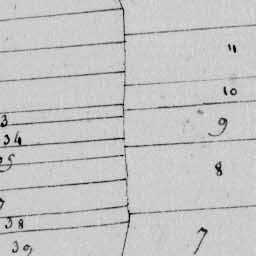 11
10
3
9
34
8
38
7
39